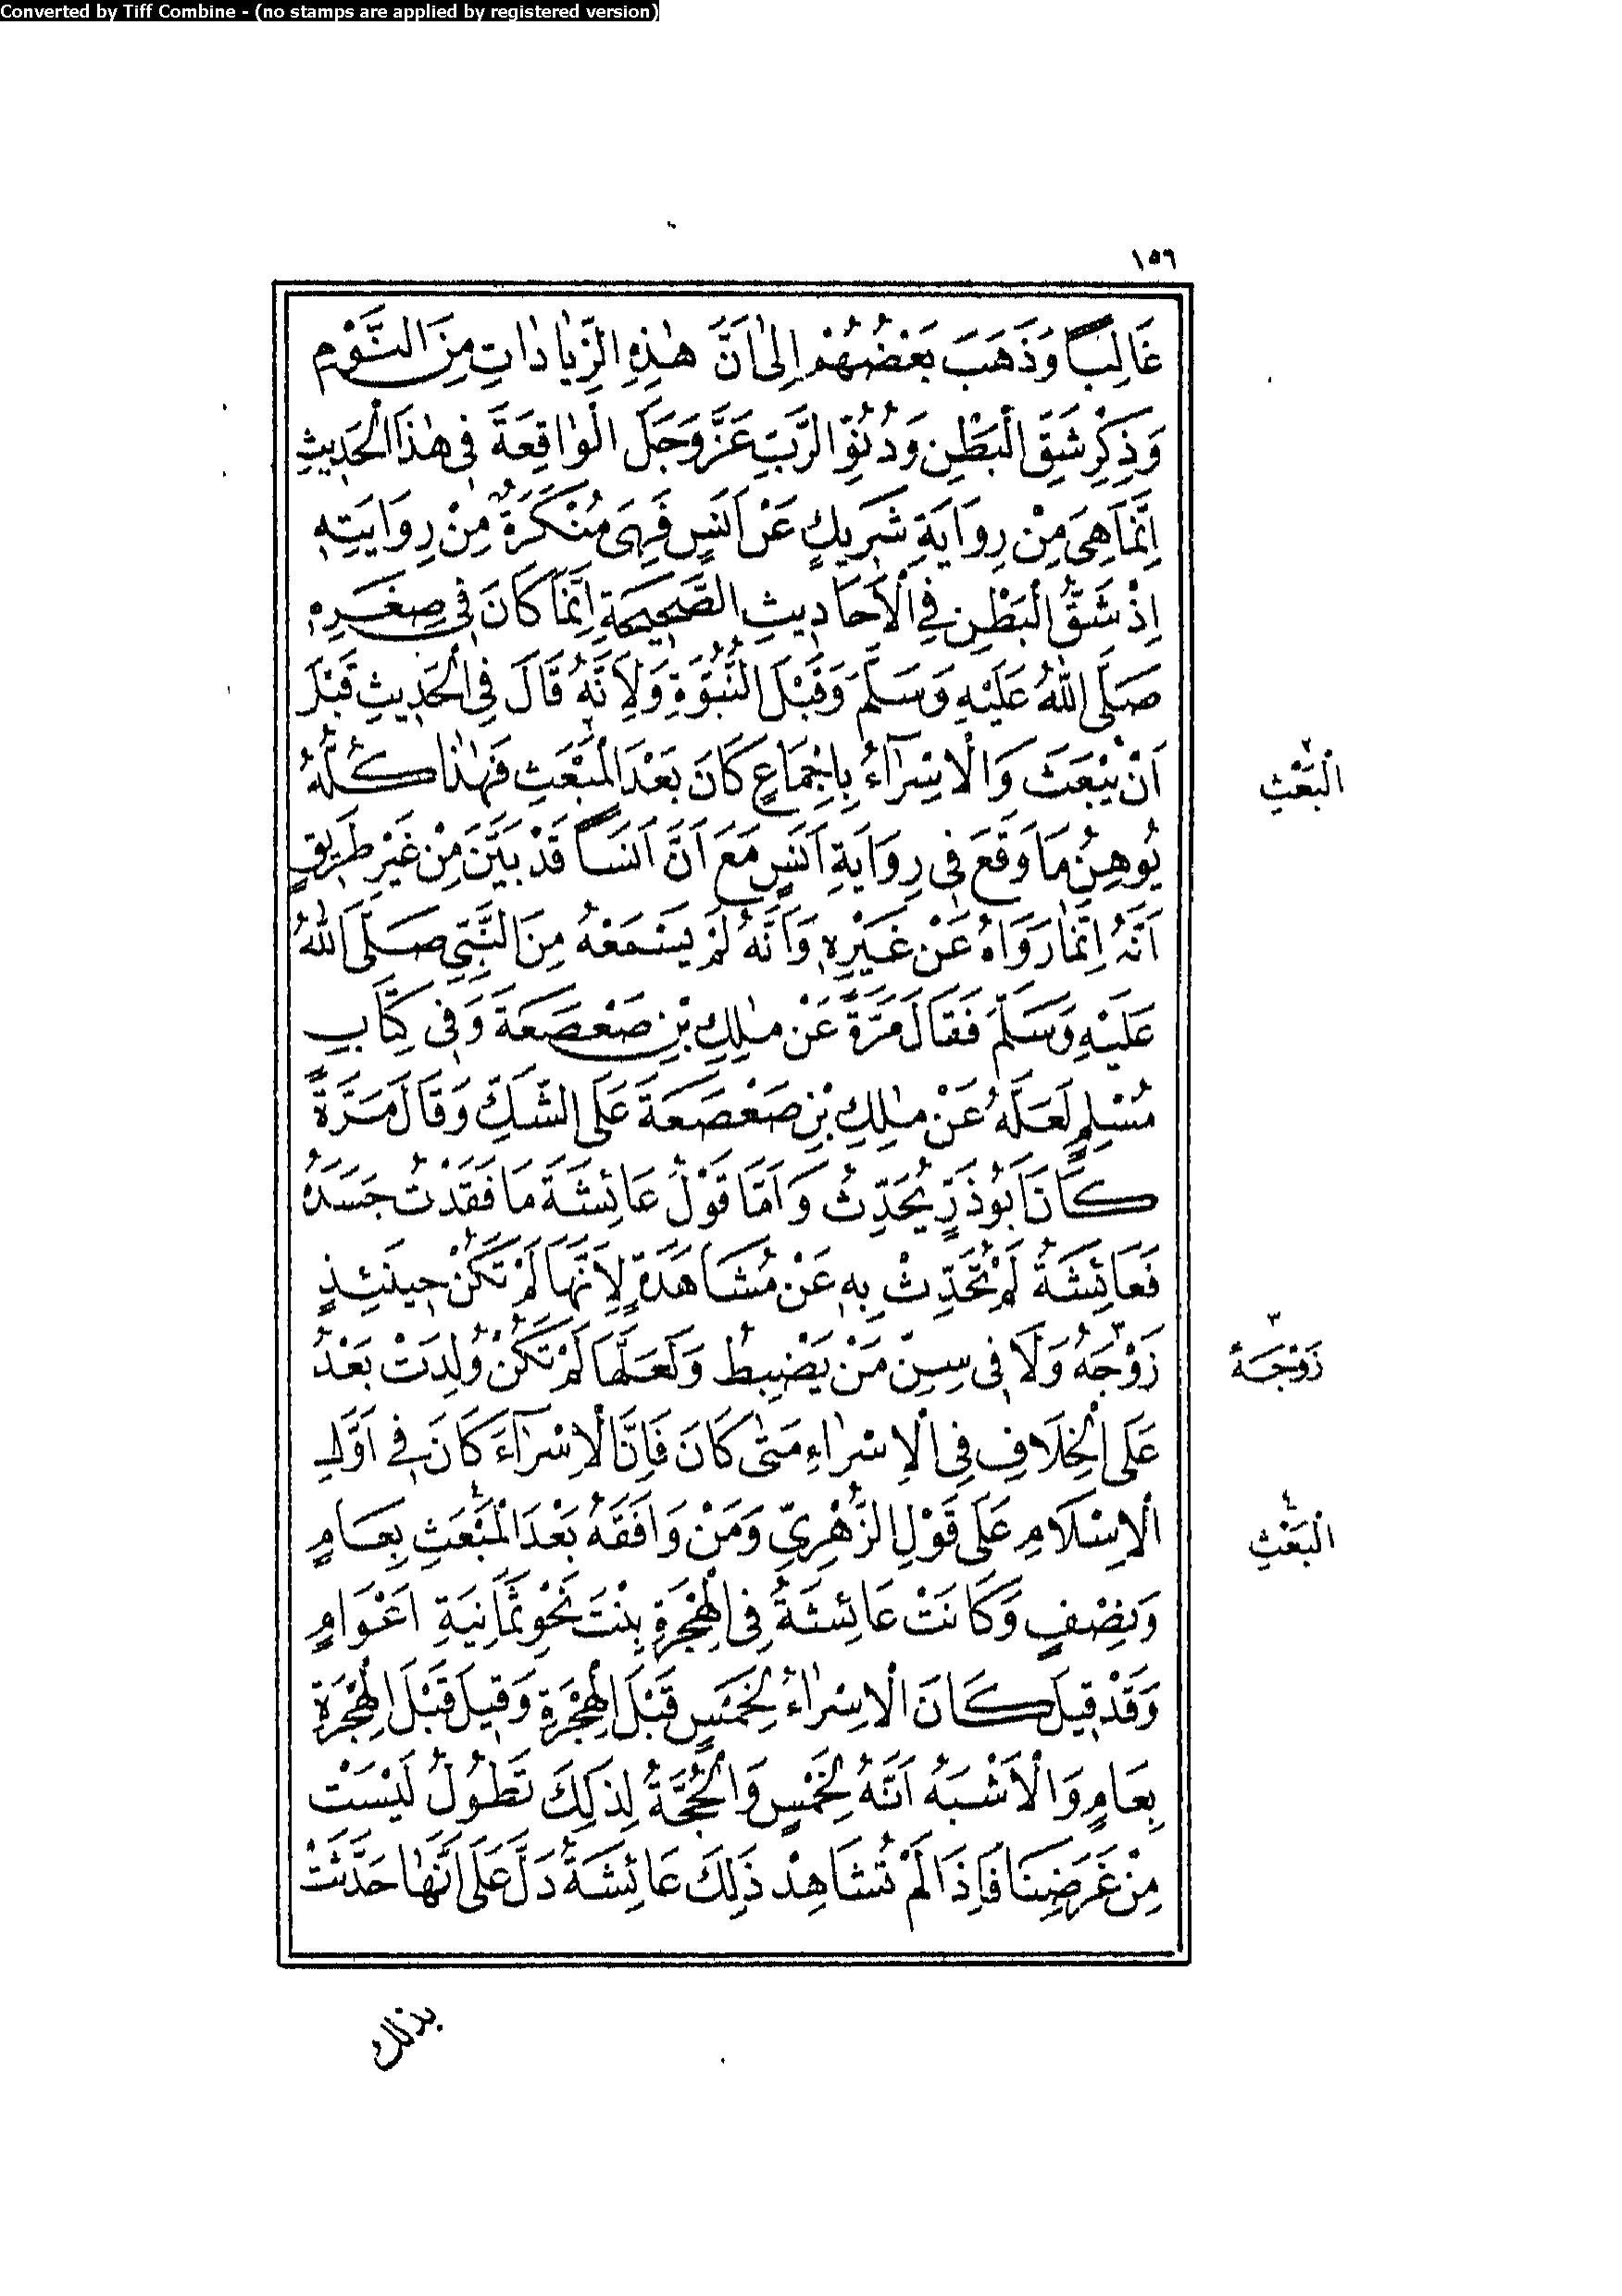 Converted by Tiff Combine - (no stamps are applied by registered version)
١٥٦
غَالِبًا وَذَهَبَ بَعْضُهُمْ إِلَىٰ أَنَّ هٰذِهِ الزِّيَادَاتِ مِنَ النَّوْمِ
وَذِكْرِ شَقِّ الْبَطْنِ وَدُنُوِّ الرَّبِّ عَزَّ وَجَلَّ الْوَاقِعَةَ فِي هٰذَا الْحَدِيثِ
اِنَّمَا هِيَ مِنْ رِوَايَةِ شَرِيكٍ عَنْ اَنَسٍ فَهِيَ مُنْكَرَةٌ مِنْ رِوَايَتِهِ
اِذْ شَقُّ الْبَطْنِ فِي الْاَحَادِيثِ الصَّحِيحَةِ اِنَّمَا كَانَ فِي صِغَرِهِ
صَلَّى اللهُ عَلَيْهِ وَسَلَّمَ وَقَبْلَ النُّبُوَّةِ وَلِاَنَّهُ قَالَ فِي الْحَدِيثِ قَبْلَ
اَنْ يُبْعَثَ وَالْاِسْرَآءُ بِاِجْمَاعٍ كَانَ بَعْدَ الْمَبْعَثِ فَهٰذَا كُلُّهُ
الْبَعْثِ
يُوهِنُ مَا وَقَعَ فِي رِوَايَةِ اَنَسٍ مَعَ اَنَّ اَنَسًا قَدْ بَيَّنَ مِنْ غَيْرِ طَرِيقٍ
اَنَّهُ اِنَّمَا رَوَاهُ عَنْ غَيْرِهِ وَاَنَّهُ لَمْ يَسْمَعْهُ مِنَ النَّبِيِّ صَلَّى اللهُ
عَلَيْهِ وَسَلَّمَ فَقَالَ مَرَّةً عَنْ مٰلِكِ بْنِ صَعْصَعَةَ وَفِي كِتَابِ
مُسْلِمٍ لَعَلَّهُ عَنْ مٰلِكِ بْنِ صَعْصَعَةَ عَلَى الشَّكِّ وَقَالَ مَرَّةً
كَانَ اَبُوذَرٍّ يُحَدِّثُ وَاَمَّا قَوْلُ عَائِشَةَ مَا فَقَدْتُ جَسَدَهُ
فَعَائِشَةُ لَمْ تُحَدِّثْ بِهِ عَنْ مُشَاهَدَةٍ لِاَنَّهَا لَمْ تَكُنْ حِينَئِذٍ
زَوْجَهُ وَلَا فِي سِنِّ مَنْ يَضْبِطُ وَلَعَلَّهَا لَمْ تَكُنْ وُلِدَتْ بَعْدُ
زَوْجَةً
عَلَى الْخِلَافِ فِي الْاِسْرَاءِ مَتٰى كَانَ فَاِنَّ الْاِسْرَآءَ كَانَ فِي اَوَّلِ
الْاِسْلَامِ عَلَى قَوْلِ الزُّهْرِيِّ وَمَنْ وَافَقَهُ بَعْدَ الْمَبْعَثِ بِعَامٍ
الْبَعْثِ
وَنِصْفٍ وَكَانَتْ عَائِشَةُ فِي الْهِجْرَةِ بِنْتَ نَحْوِ ثَمَانِيَةِ اَعْوَامٍ
وَقَدْ قِيلَ كَانَ الْاِسْرَاءُ لِخَمْسٍ قَبْلَ الْهِجْرَةِ وَقِيلَ قَبْلَ الْهِجْرَةِ
بِعَامٍ وَالْاَشْبَهُ اَنَّهُ لِخَمْسٍ وَالْحُجَّةُ لِذٰلِكَ تَطُولُ لَيْسَتْ
مِنْ غَرَضِنَا فَاِذَا لَمْ تُشَاهِدْ ذٰلِكَ عَائِشَةُ دَلَّ عَلَى اَنَّهَا حَدَّثَتْ
بذلك